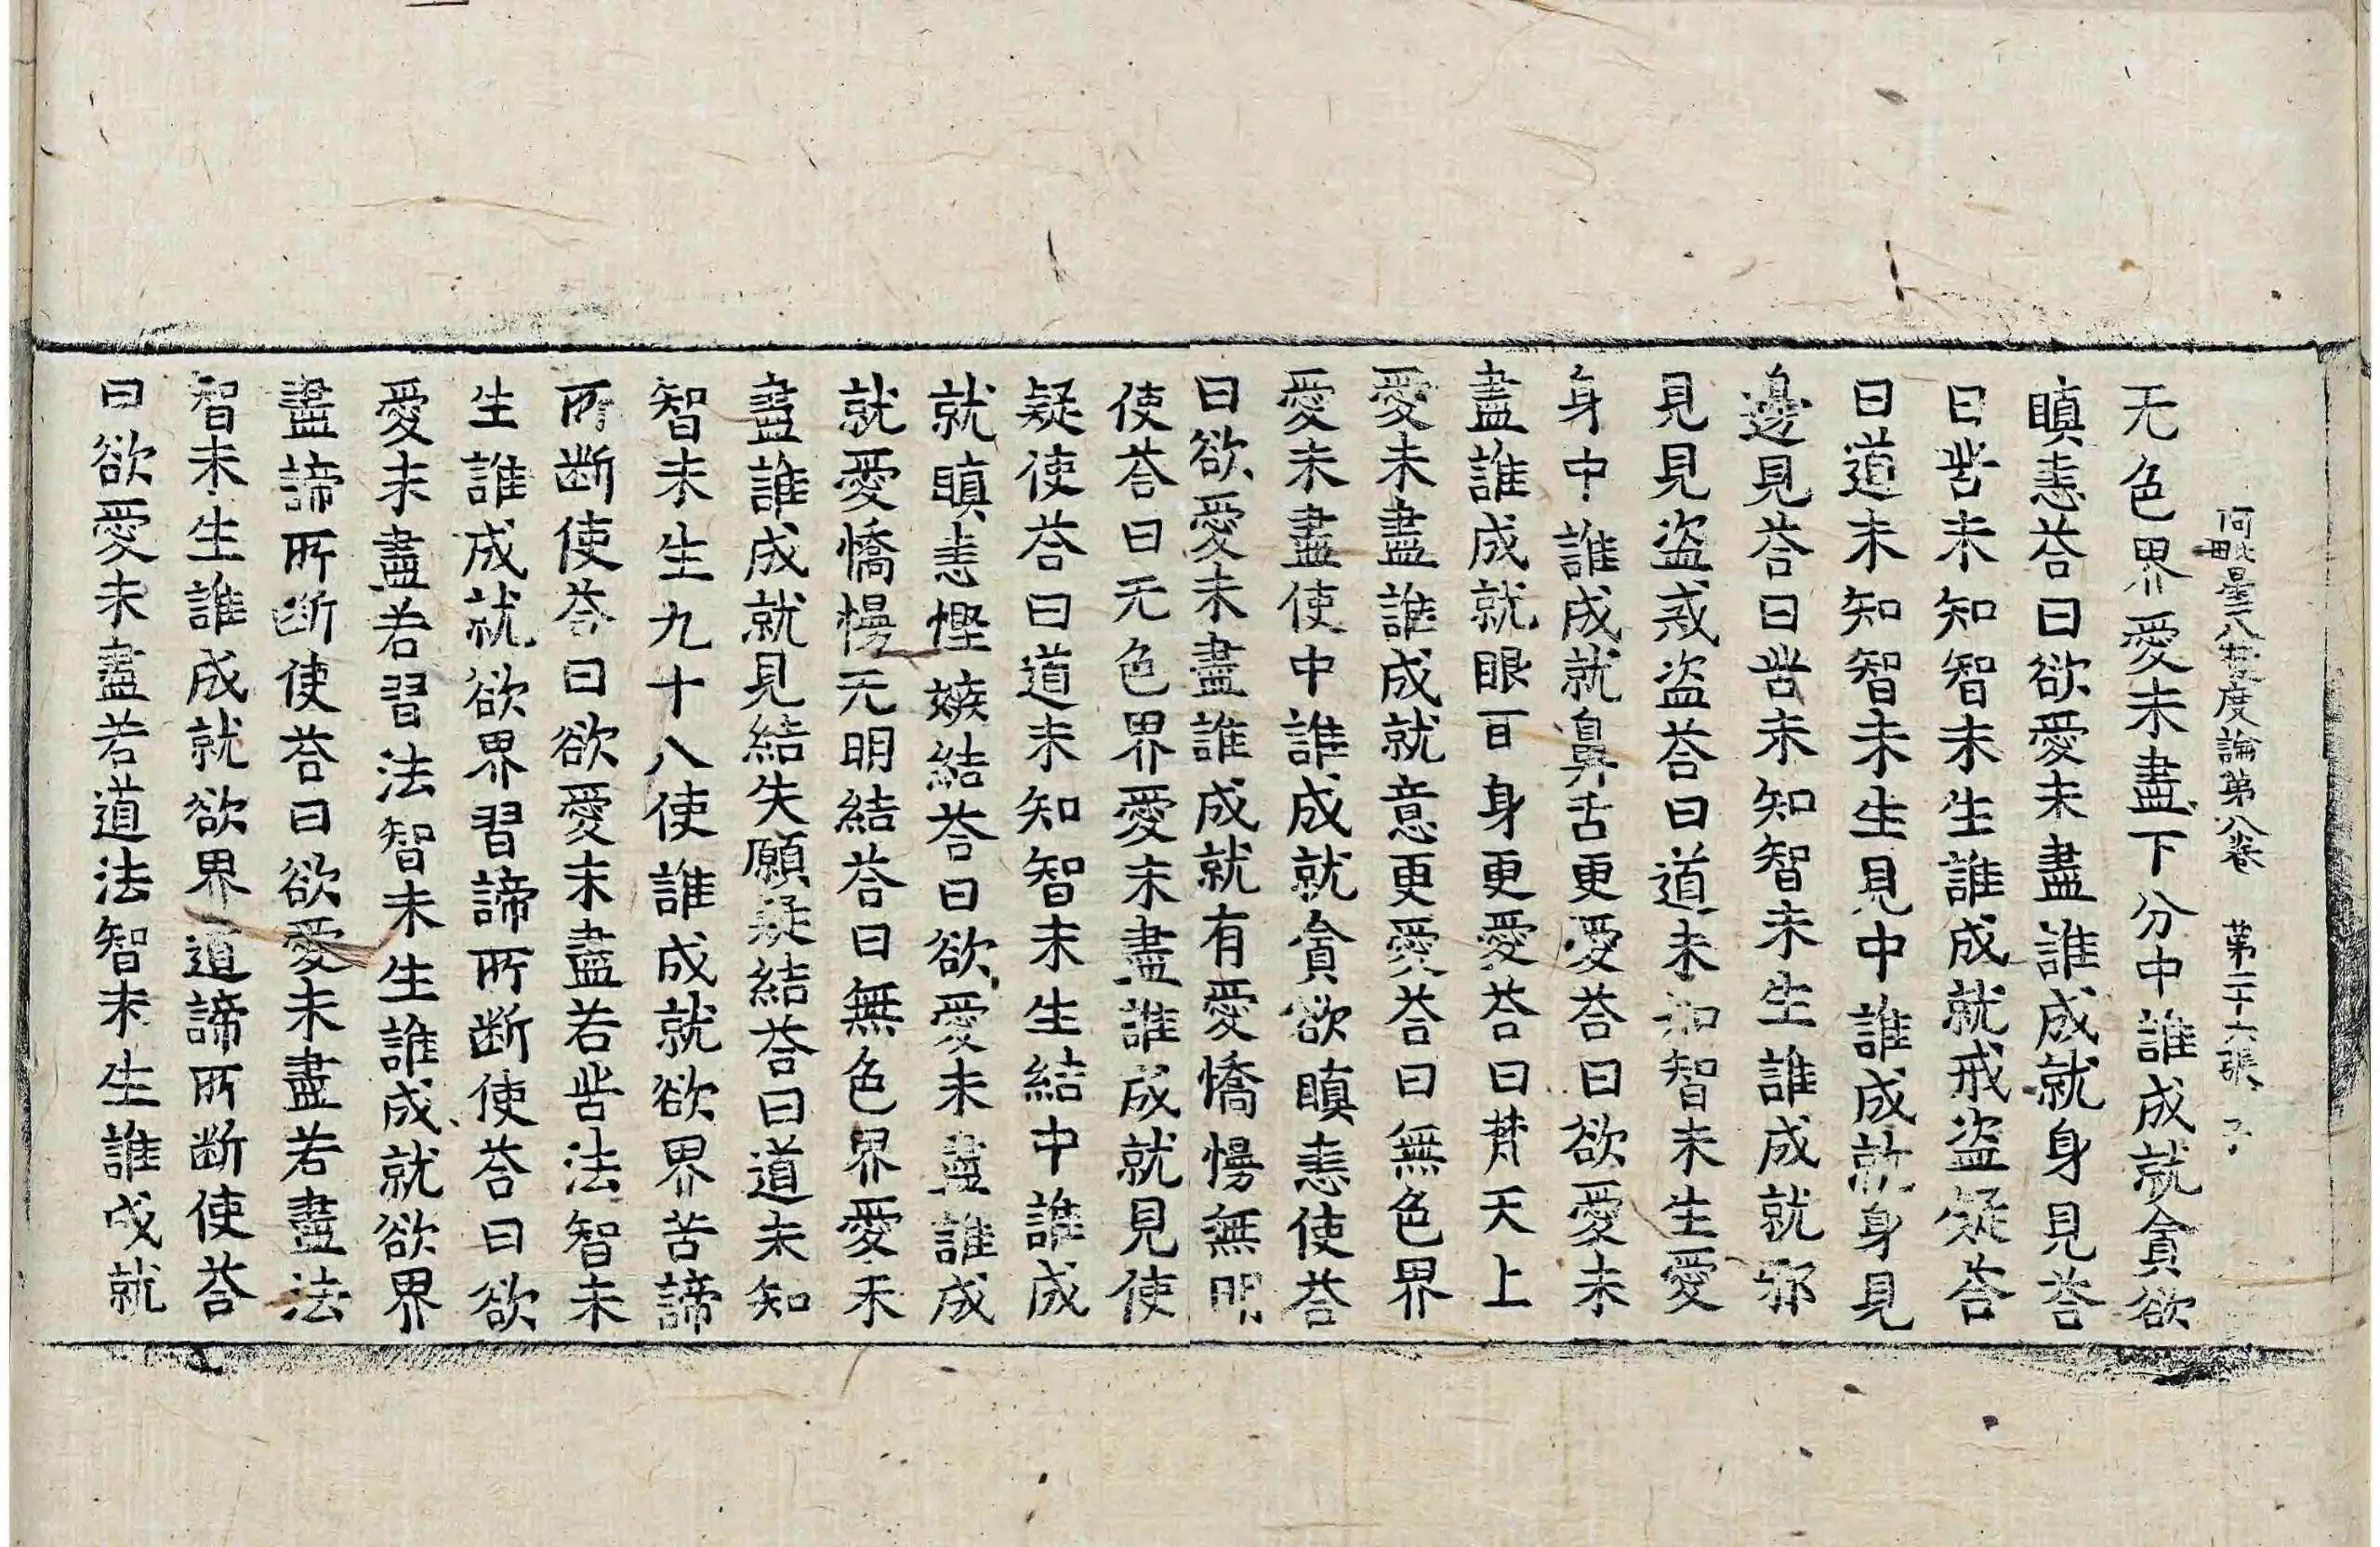 阿毗曇八揵度論第八卷　第二十六張　子
无色界愛未盡下分中誰成就貪欲
瞋恚荅曰欲愛未盡誰成就身見荅
曰苦未知智未生誰成就戒盜疑荅
曰道未知智未生見中誰成就身見
邊見荅曰苦未知智未生誰成就邪
見見盜戒盜荅曰道未知智未生愛
身中誰成就鼻舌更愛荅曰欲愛未
盡誰成就眼耳身更愛荅曰梵天上
愛未盡誰成就意更愛荅曰無色界
愛未盡使中誰成就貪欲瞋恚使荅
曰欲愛未盡誰成就有愛憍慢無明
使荅曰无色界愛未盡誰成就見使
疑使荅曰道未知智未生結中誰成
就瞋恚慳嫉結荅曰欲愛未盡誰成
就愛憍慢无明結荅曰無色界愛未
盡誰成就見結失願疑結荅曰道未知
智未生九十八使誰成就欲界苦諦
所斷使荅曰欲愛未盡若苦法智未
生誰成就欲界習諦所斷使荅曰欲
愛未盡若習法智未生誰成就欲界
盡諦所斷使荅曰欲愛未盡若盡法
智未生誰成就欲界道諦所斷使荅
曰欲愛未盡若道法智未生誰成就